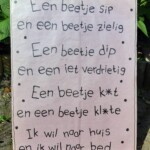 Een beetje sip
en een beetje zielig
Een beetje dip
en een iet verdrietig
Een beetje k*t
en een beetje kl*te
Ik wil naar huis
en ik wil naar bed